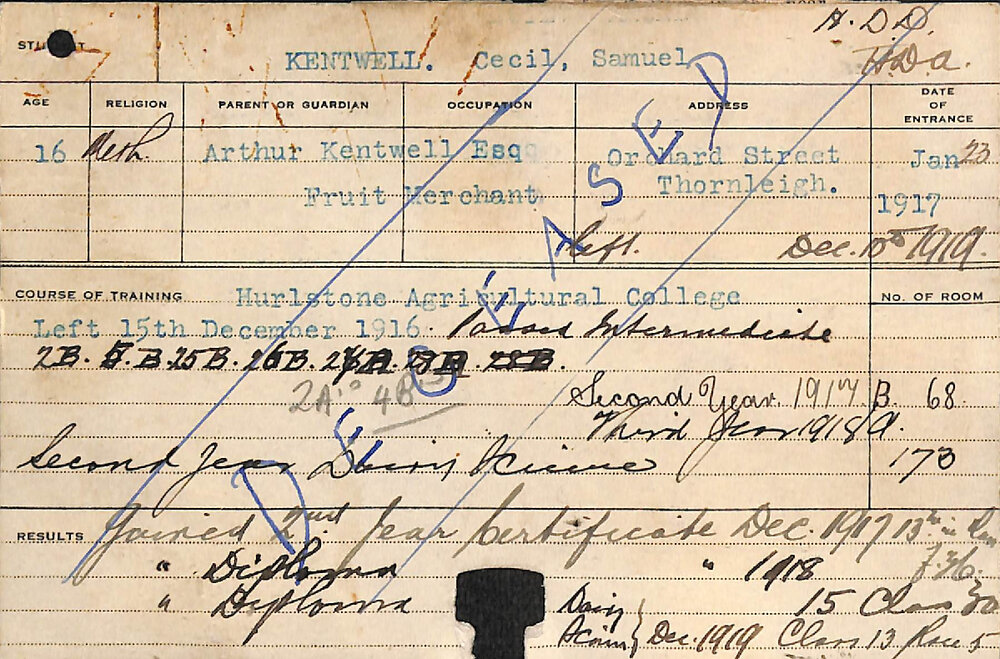 H.D.D.
H.D.A.
STUDENT
KENTWELL. Cecil, Samuel
AGE RELIGION PARENT OR GUARDIAN OCCUPATION ADDRESS DATE OF ENTRANCE
16 Meth. Arthur Kentwell Esq Orchard Street Jan 23
Fruit Merchant Thornleigh. 1917
Left. Dec. 10th 1919.
DECEASED
COURSE OF TRAINING Hurlstone Agricultural College No. OF ROOM
Left 15th December 1916. Passed Intermediate
2B. B. 25B. 26B.
2A 4B
Second Year. 1917. B. 68.
Third Year 1918 A.
Second Year Dairy Science 173
RESULTS Gained 2nd Year Certificate Dec. 1917 13th in
" Diploma " 1918
" Diploma Dairy 15 Class
Science Dec. 1919 Class 13 Pass 5